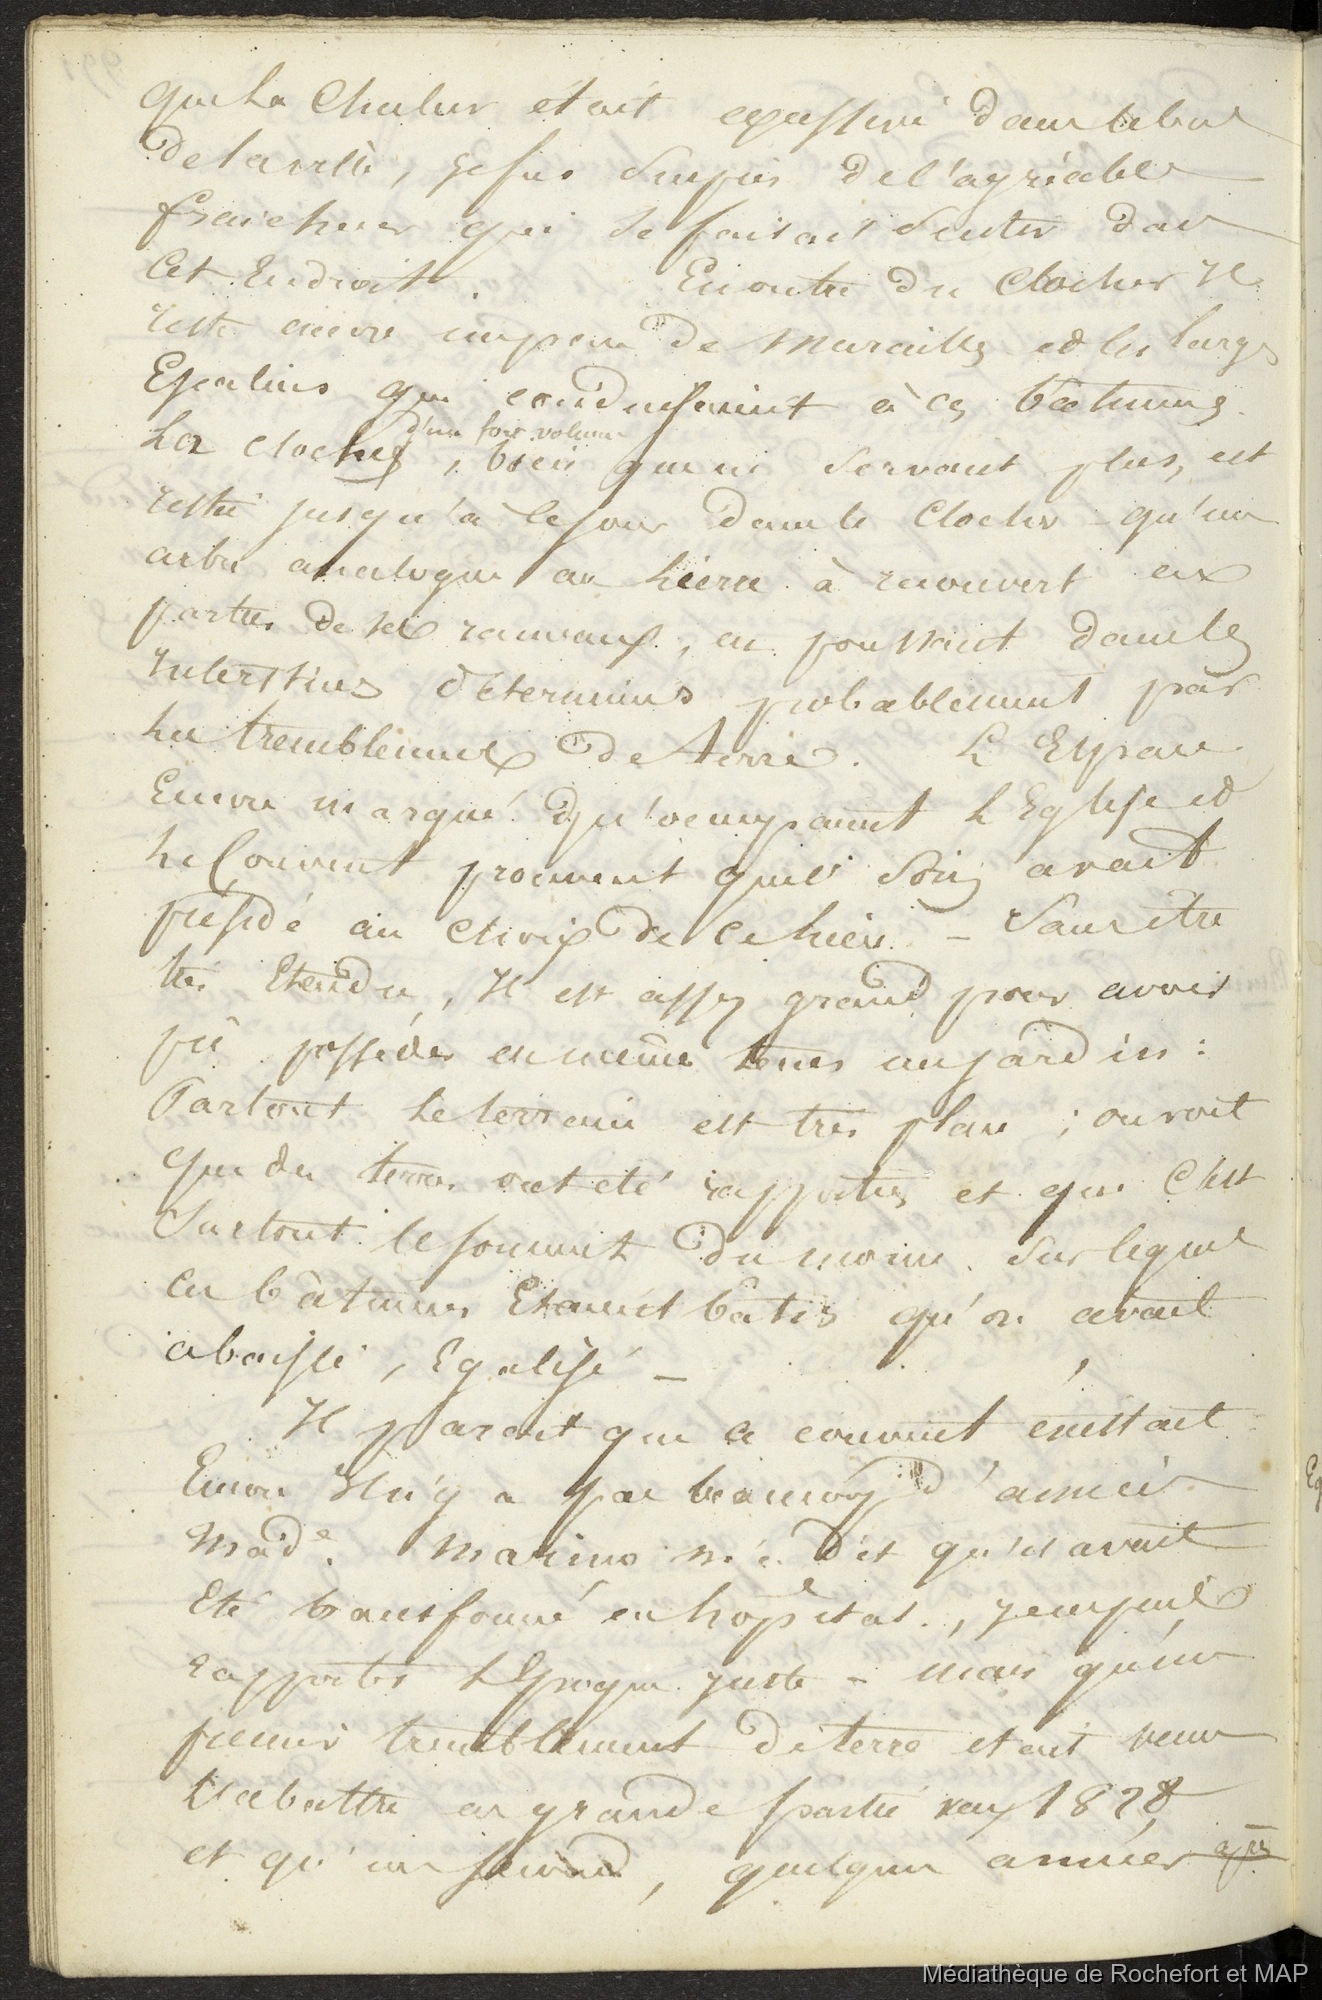 que la Chaleur était excessive dans le bas
de la ville, je fus surpris de l'agréable
fraicheur qui se faisait sentir dans
cet Endroit. En outre du Clocher Il
reste encore un peu de murailles et les larges
Escaliers qui conduisaient à ces bâtimens.
La cloche d'un fort volume, bien que ne servant plus, est
restée jusqu'à ce jour dans le Clocher - qu'un
arbre analogue au lierre à recouvert en
partie de ses rameaux, en poussant dans les
interstices déterminés probablement par
les tremblemens de terre. L'Espace
Encore marqué qu'occupaient l'Eglise et
le Couvent prouvent quel soin avait
présidé au choix de ce lieu - Sans être
très Etendu, Il est assez grand pour avoir
pû posséder en même tems un jardin :
Partout le terrain est très plan ; on voit
que des terres ont été rapportées et que c'est
Surtout le sommet du morne sur lequel
ces bâtimens Etaient bâtis qu'on avait
abaissé, Egalisé -
Il parait que ce couvent existait
Encore Il n'y a pas beaucoup d'années.
Made. Marino m'a dit qu'il avait
Eté transformé en hôpital., je ne puis
rapporter l'Epoque juste - mais qu'un
premier tremblement de terre etait venu
l'abattre en grande partie vers 1828
et qu'un second, quelques années après
Médiathèque de Rochefort et MAP